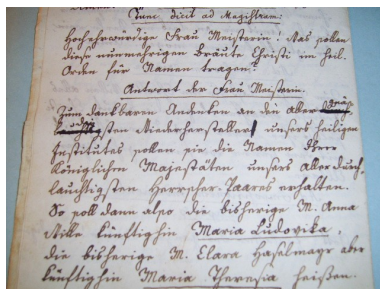 Tunc dicit ad Magistram:
Hochehrwürdige Frau Meisterin! Was sollen
diese nunmehrigen Bräute Christi im heil.
Orden für Namen tragen?
Antwort der Frau Meisterin.
Zum dankbaren Andenken an den aller
gsten Wiederhersteller unsers heiligen
Institutes sollen sie die Namen Ihrer
Königlichen Majestäten unsers allerdurch-
lauchtigsten Herrscher-Paares erhalten.
So soll dann also die bisherige M. Anna
künftighin Maria Ludovika,
die bisherige M. Clara Haselmayr aber
künftighin Maria Theresia heißen.